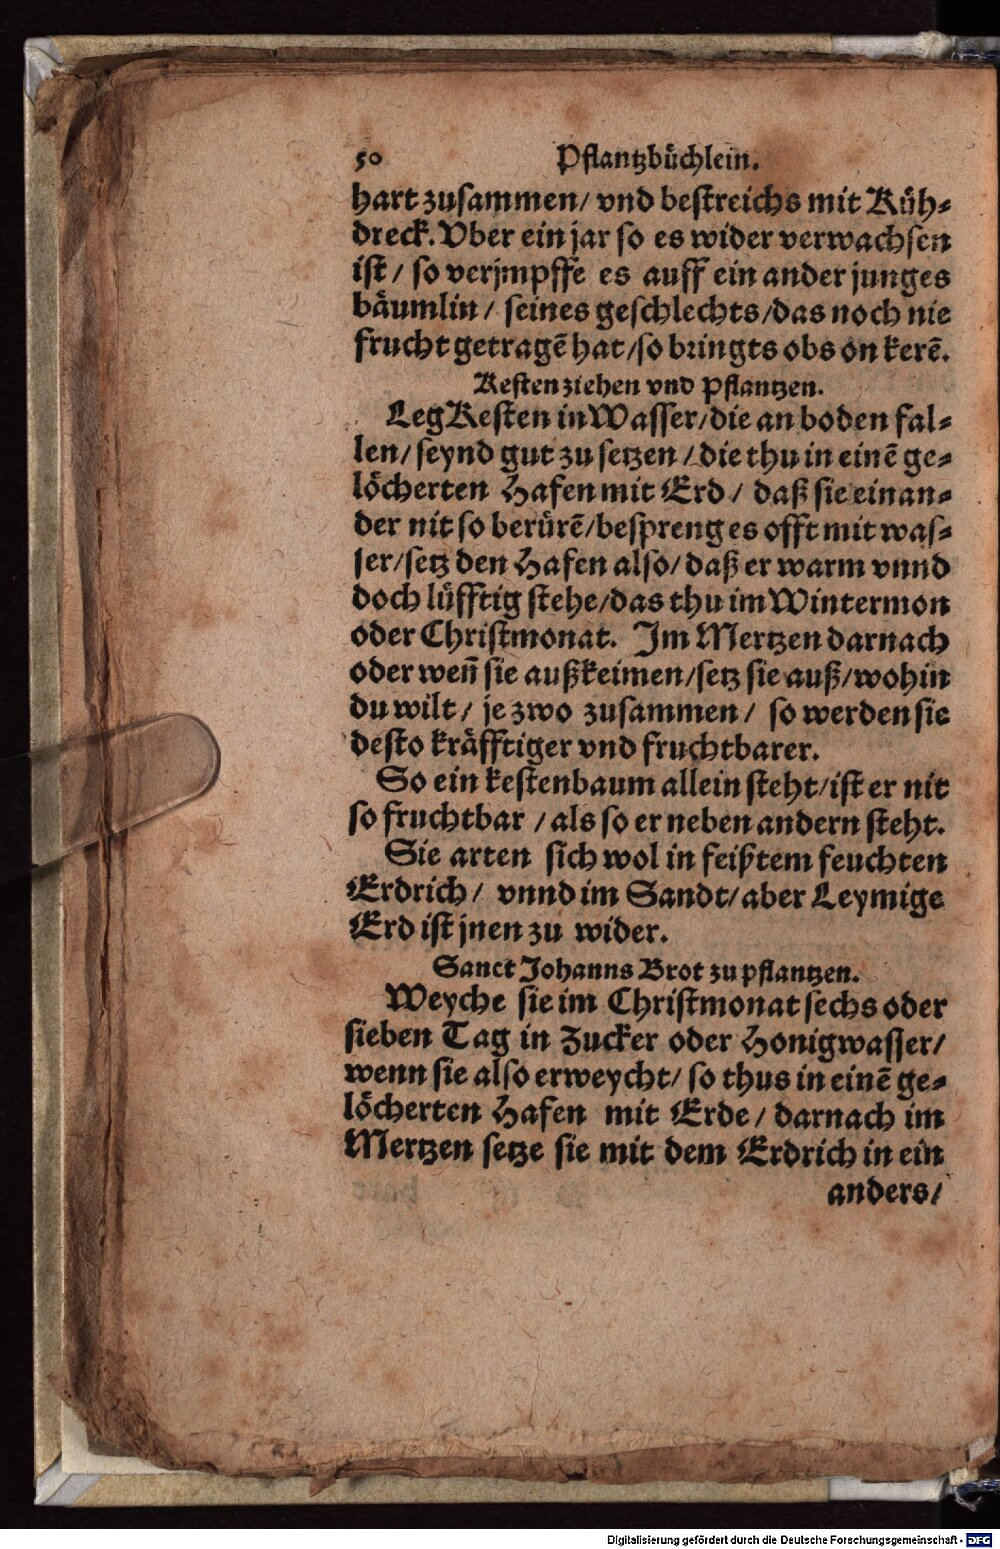 50 Pflantzbüchlein.
hart zusammen/ vnd bestreichs mit Küh⸗
dreck. Vber ein jar so es wider verwachsen
ist/ so verjmpffe es auff ein ander junges
bäumlin/ seines geschlechts/das noch nie
frucht getragē hat/so bringts obs on kerē.
Kesten ziehen vnd pflantzen.
Leg Kesten in Wasser/die an boden fal⸗
len/ seynd gut zu setzen/die thu in einē ge⸗
löcherten Hafen mit Erd/ daß sie einan⸗
der nit so berürē/bespreng es offt mit was⸗
ser/setz den Hafen also/ daß er warm vnnd
doch lüfftig stehe/das thu im Wintermon
oder Christmonat. Im Mertzen darnach
oder weñ sie außkeimen/setz sie auß/wohin
du wilt/ je zwo zusammen/ so werden sie
desto kräfftiger vnd fruchtbarer.
So ein kestenbaum allein steht/ist er nit
so fruchtbar/als so er neben andern steht.
Sie arten sich wol in feißtem feuchten
Erdrich/ vnnd im Sandt/aber Leymige
Erd ist jnen zu wider.
Sanct Johanns Brot zu pflantzen.
Weyche sie im Christmonat sechs oder
sieben Tag in Zucker oder Honigwasser/
wenn sie also erweycht/ so thus in einē ge⸗
löcherten Hafen mit Erde/ darnach im
Mertzen setze sie mit dem Erdrich in ein
anders/
Digitalisierung gefördert durch die Deutsche Forschungsgemeinschaft - DFG